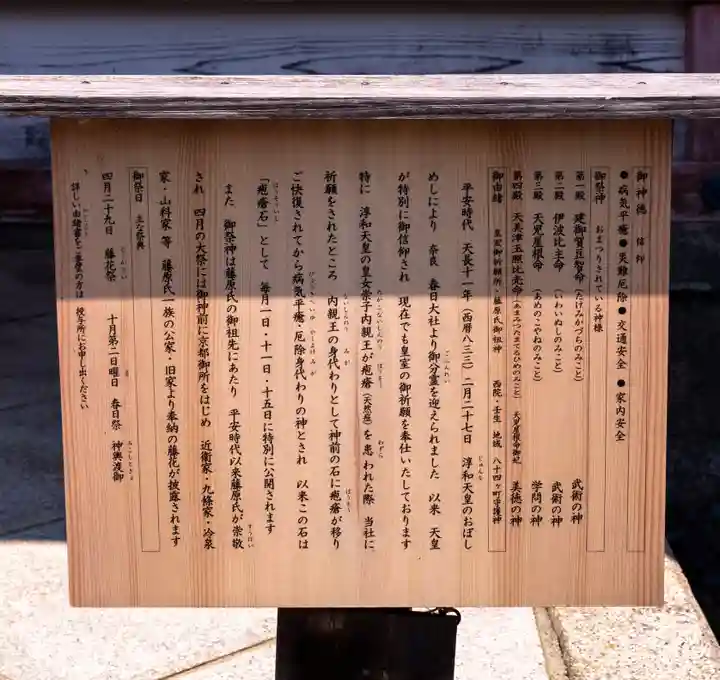 御神徳 信仰
●病気平癒 ●災難厄除 ●交通安全 ●家内安全
御祭神 おまつりされている神様
第一殿 建御賀豆智命 (たけみかづちのみこと) 武術の神
第二殿 伊波比主命 (いわいぬしのみこと) 武術の神
第三殿 天児屋根命 (あめのこやねのみこと) 学問の神
第四殿 天美津玉照比売命 (あまみつたまてるひめのみこと) 天児屋根命御妃 美徳の神
御由緒 皇室御祈願所・藤原氏御祖神 西院・壬生 地域 八十四ヶ町守護神
平安時代 天長十一年(西暦八三三)二月二十七日 淳和天皇のおぼし
めしにより 奈良 春日大社より御分霊を迎えられました 以来 天皇
が特別に御信仰され 現在でも皇室の御祈願を奉仕いたしております
特に 淳和天皇の皇女崇子内親王が疱瘡(天然痘)を患われた際 当社に
祈願をされたところ 内親王の身代わりとして神前の石に疱瘡が移り
ご快復されてから病気平癒・厄除身代わりの神とされ 以来この石は
「疱瘡石」として 毎月一日・十一日・十五日に特別に公開されます
また 御祭神は藤原氏の御祖先にあたり 平安時代以来藤原氏が崇敬
され 四月の大祭には御神前に京都御所をはじめ 近衛家・九條家・冷泉
家・山科家 等 藤原氏一族の公家・旧家より奉納の藤花が披露されます
御祭日 主な祭典
四月二十九日 藤花祭 十月第二日曜日 春日祭 神輿渡御
詳しい由緒書をご希望の方は 授与所にお申し出ください